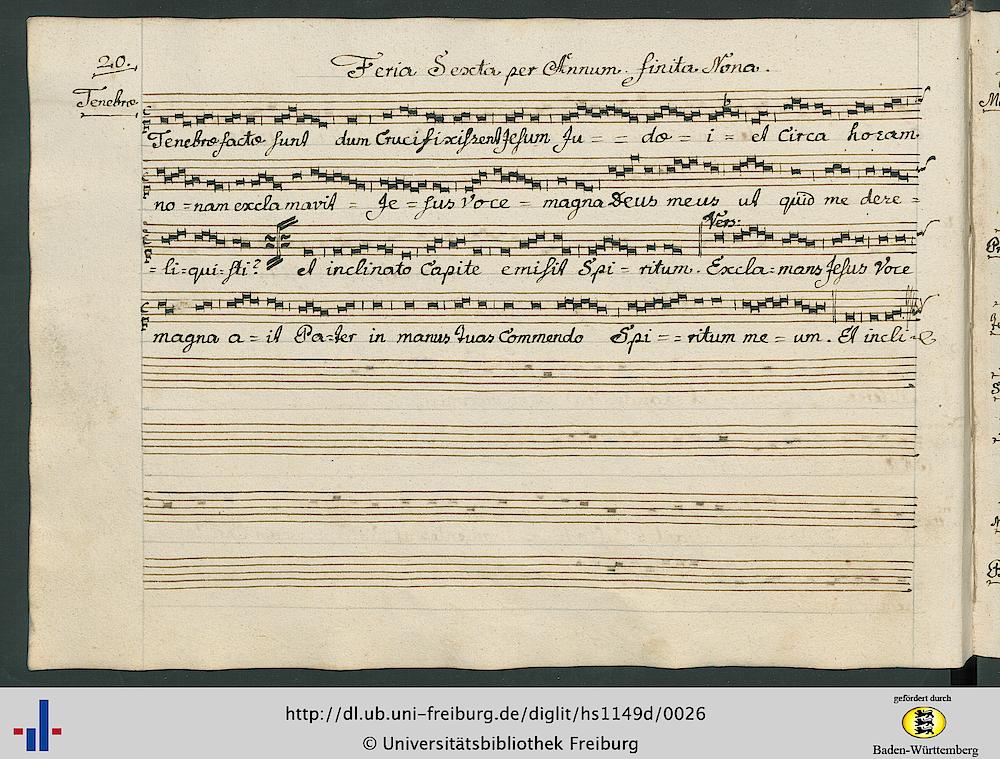 20.
Feria Sexta per Annum. finita Nona.
Tenebræ
Tenebræ factæ sunt dum Crucifixissent Jesum Ju = = dæ = i = et Circa horam
Vers:
no = nam exclamavit = Je = sus Voce = magna Deus meus ut quid me dere =
= li = qui = sti? et inclinato Capite emisit Spi = ritum. Excla = mans Jesus Voce
magna a = it Pa = ter in manus tuas Commendo Spi = = ritum me = um. Et incli =
http://dl.ub.uni-freiburg.de/diglit/hs1149d/0026
© Universitätsbibliothek Freiburg
gefördert durch
Baden-Württemberg